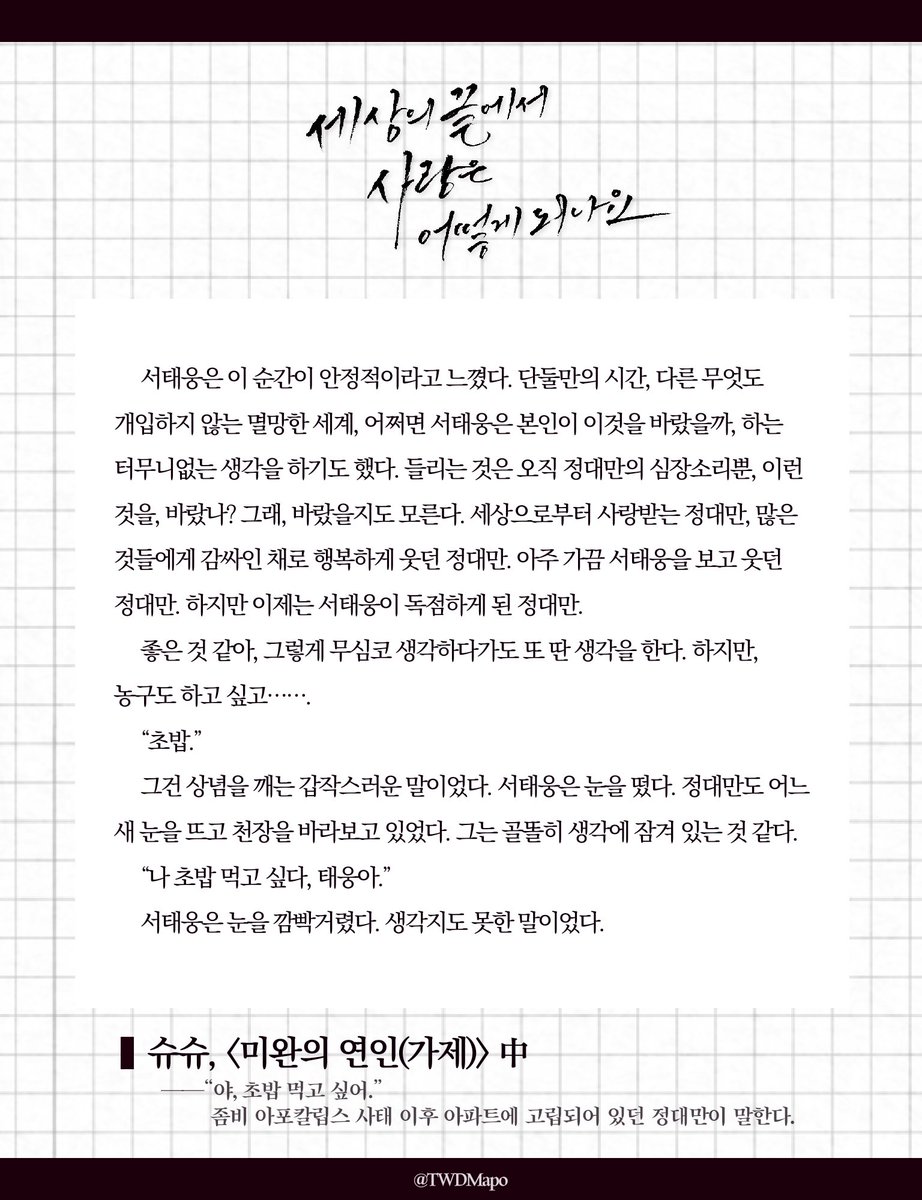 세상의 끝에서
사랑은
어떻게 되나요
서태웅은 이 순간이 안정적이라고 느꼈다. 단둘만의 시간, 다른 무엇도
개입하지 않는 멸망한 세계, 어쩌면 서태웅은 본인이 이것을 바랐을까, 하는
터무니없는 생각을 하기도 했다. 들리는 것은 오직 정대만의 심장소리뿐, 이런
것을, 바랐나? 그래, 바랐을지도 모른다. 세상으로부터 사랑받는 정대만, 많은
것들에게 감싸인 채로 행복하게 웃던 정대만. 아주 가끔 서태웅을 보고 웃던
정대만. 하지만 이제는 서태웅이 독점하게 된 정대만.
좋은 것 같아, 그렇게 무심코 생각하다가도 또 딴 생각을 한다. 하지만,
농구도 하고 싶고…….
“초밥.”
그건 상념을 깨는 갑작스러운 말이었다. 서태웅은 눈을 떴다. 정대만도 어느
새 눈을 뜨고 천장을 바라보고 있었다. 그는 골똘히 생각에 잠겨 있는 것 같다.
“나 초밥 먹고 싶다, 태웅아.”
서태웅은 눈을 깜빡거렸다. 생각지도 못한 말이었다.
슈슈, 〈미완의 연인(가제)〉 中
——“야, 초밥 먹고 싶어.”
좀비 아포칼립스 사태 이후 아파트에 고립되어 있던 정대만이 말한다.
@TWDMapo